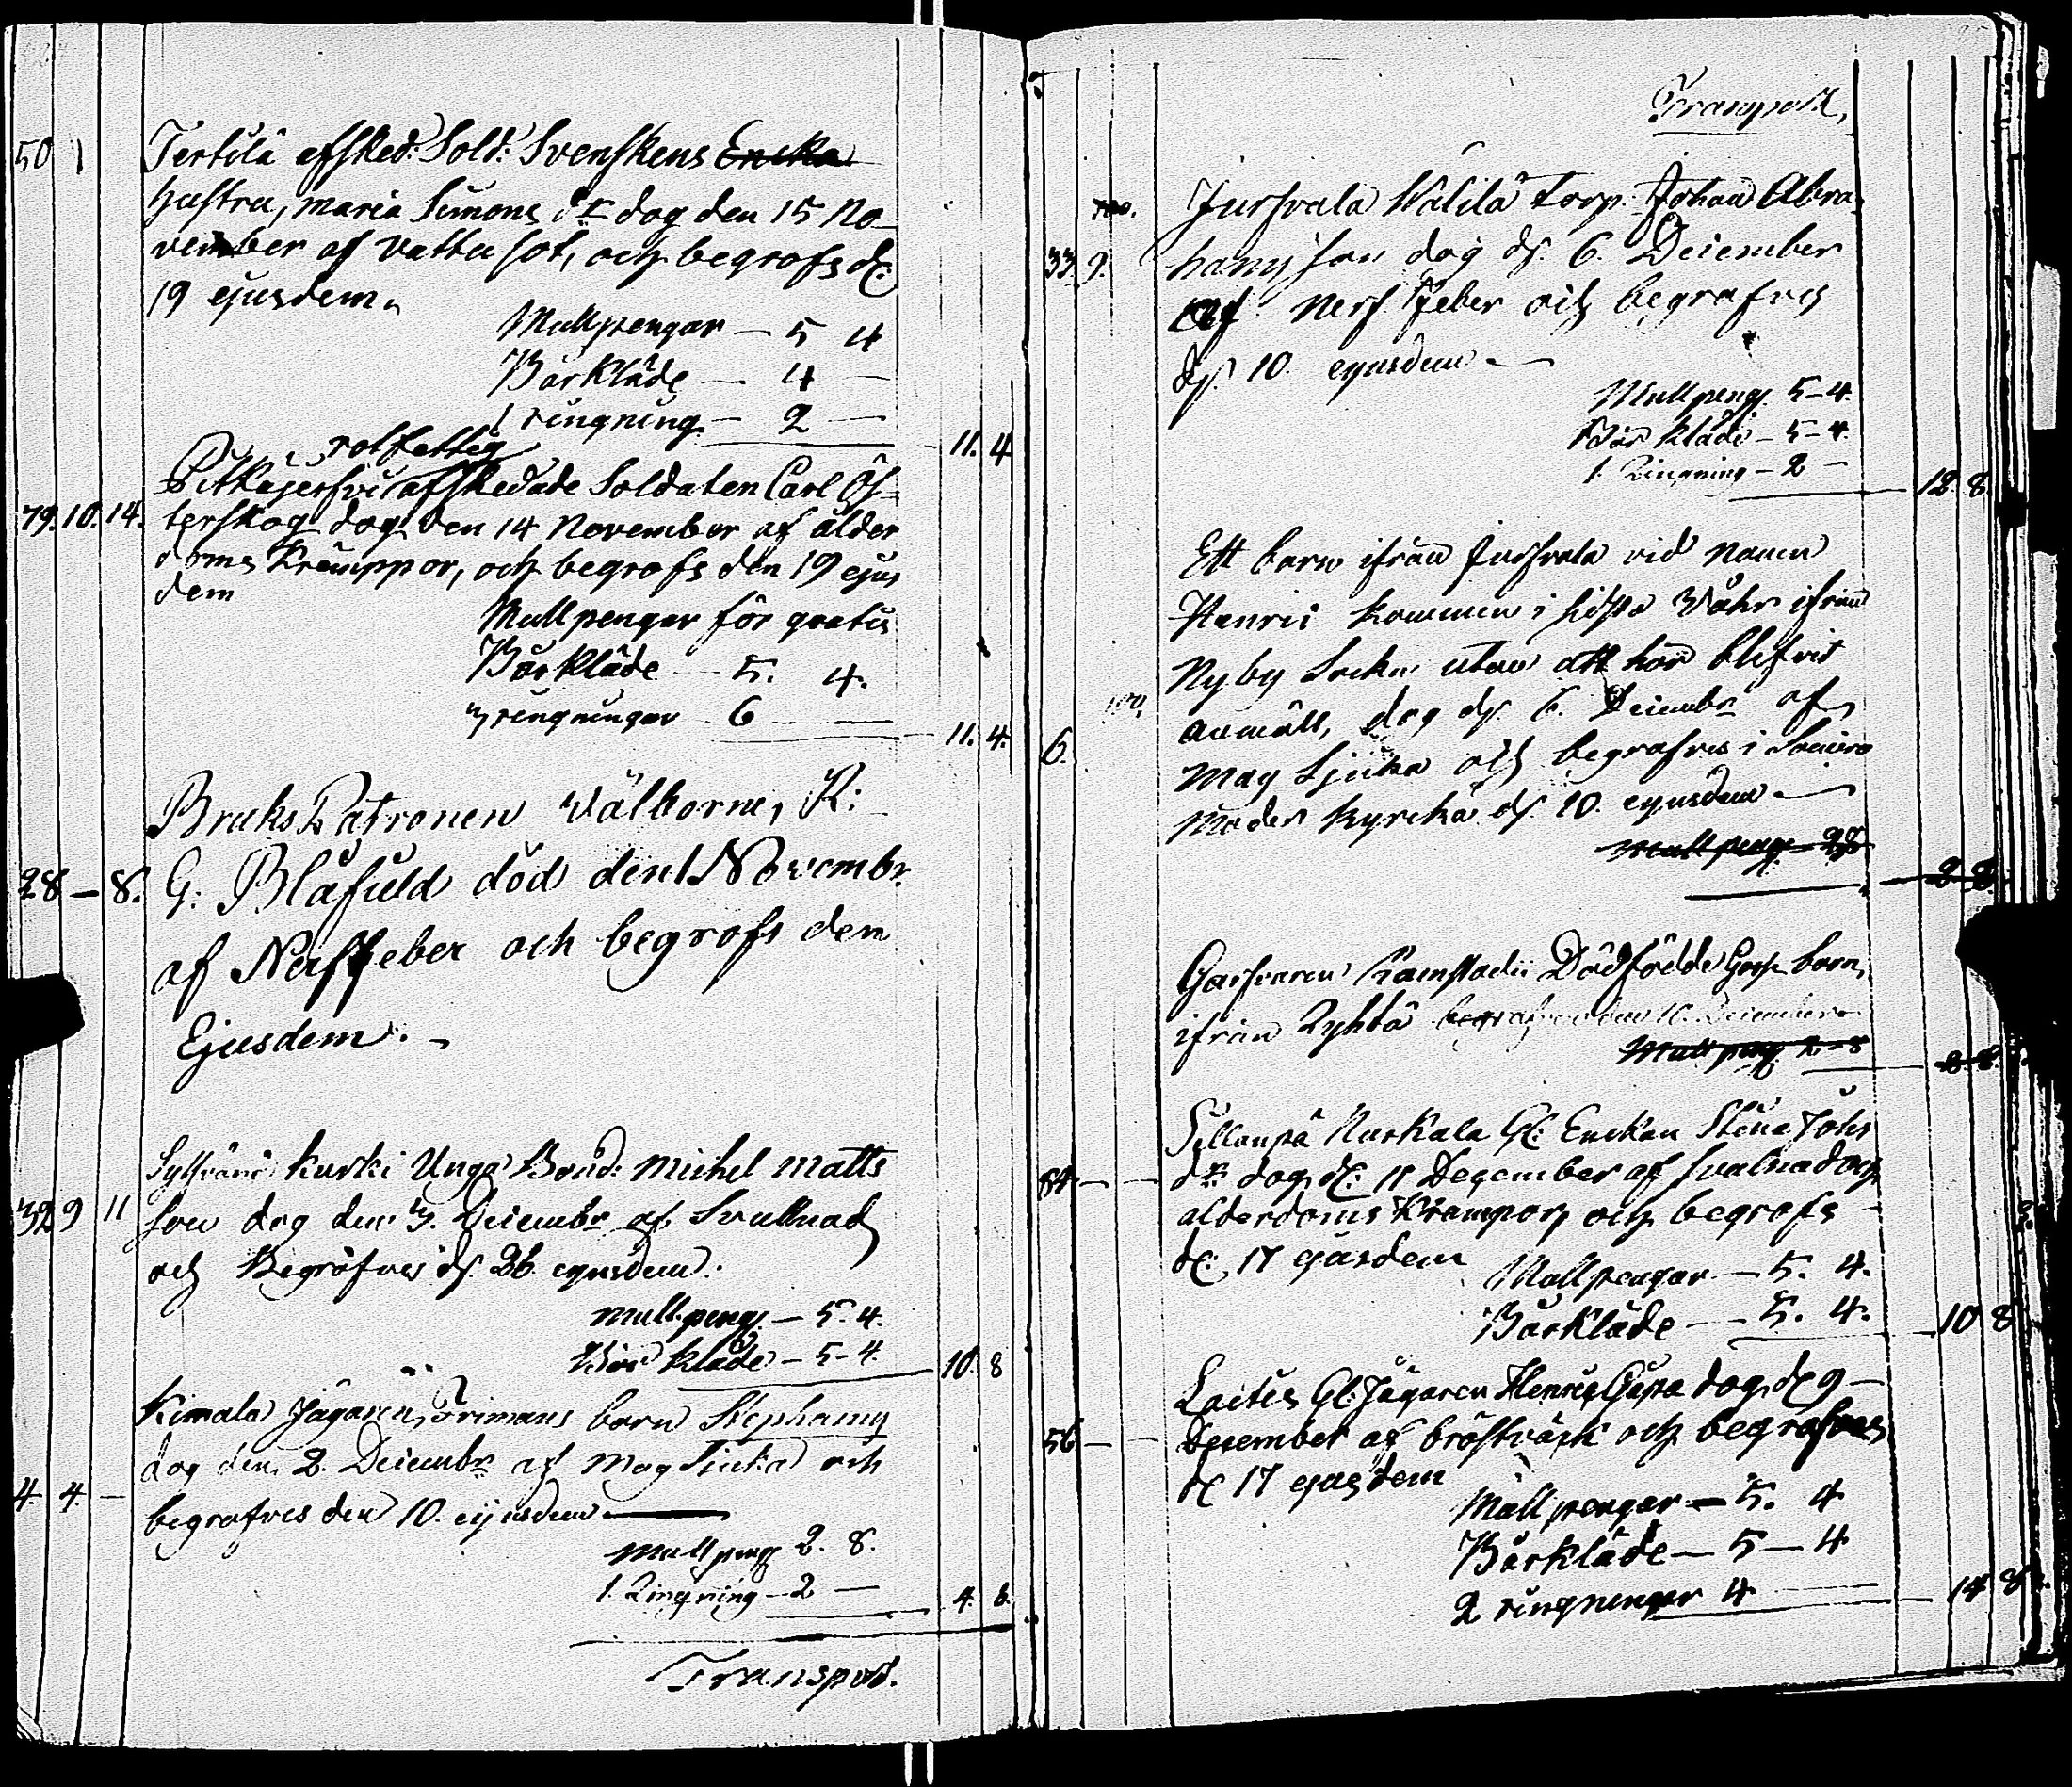 50 1 Tertilä afsked: Sold: Svenskens Encka
hustru, maria Simons dr dog den 15 No-
vember af vattu sot, och begrofs d:
19 ejusdem.
Mullpengar — 5 4
Bårkläde — 4 —
1 ringning — 2 —
11. 4
rotfattig
Pitkäjerfvi afskedade Soldaten Carl Ös-
79. 10. 14. terskog dog den 14 November af ålder
doms Krämppor, och begrofs den 19 ejus
dem
Mullpengar för gratis
Bårkläde — 5. 4.
3 ringningar 6 —
11. 4.
Bruks Patronen Välborne, K:
28 — 8. G: Blåfield död den 1 Novembr.
af Nerffeber och begrofs den
Ejusdem. -
Kurki Unga Bond: Michel Matts
32 9 11 son dog den 3. Decembr af Svullnad
och Begrofves d. 26 ejusdem.
Mullpeng. — 5. 4.
Bår kläde — 5 - 4.
10. 8
Kimala Jägaren, Frimans barn Stephanus
dog den 2. Decembr af Mag Siuka och
4. 4. — begrafves den 10. eijusdem —
Mullpeng 2. 8.
1. Ringning — 2 —
4. 8.
Transport.
Transport,
Jursvala Wälilä torp. Johan Abra-
33 9. hams son dog d. 6. December
af Nerf Feber och begrafves
d. 10. ejusdem —
Mullpeng. 5 - 4.
Bår kläde — 5 - 4.
1. Ringning — 2 —
12. 8.
Ett barn ifrån Jursvala vid namn
Henric kommen i sidsta Wåhr ifrån
Nyby Sokn utan att har blifvit
anmält, dog d. 6. Decembr af
6. Mag Sjuka och begrafves i Somero
Moder Kyrcka d. 10. ejusdem —
Mull peng — 2 8
2 8.
Garfvaren Ramstadii Dödfödde Gosse barn,
ifrån Zyhtä begrafven den 10. December
Mull peng 2 - 8
2. 8.
Sillanpä Nurkala Gl: Enckan Stina Johs
84 — — dr: dog d: 11 December af svalnad och
alderdoms Krämpor, och begrofs
d: 17 ejusdem
Mullpengar — 5. 4.
Bårkläde — 5. 4.
10 8
Gl: Jägaren Henric dog d 9 —
56 — — December af bröstvärk och begrafves
d 17 ejusdem
Mullpengar — 5. 4
Bårkläde — 5 — 4
2 ringningar 4 —
14 8